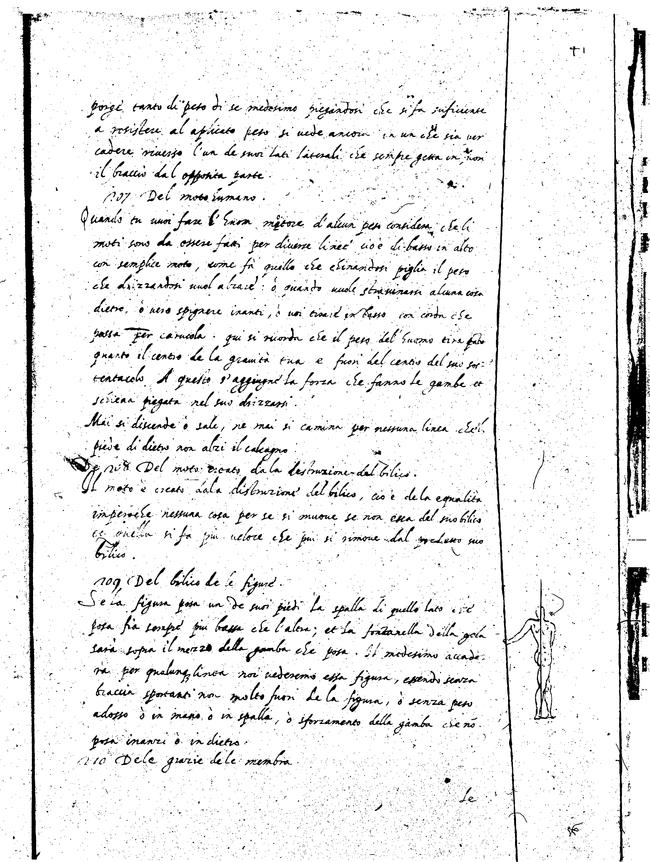 porge tanto di peso di se medesimo piegandosi che si fa suficiente
a resistere al aplicato peso si uede ancora in un che sia per
cadere riuerso l'un de suoi lati laterali che sempre getta in
il braccio dal opposita parte.
207 Del moto humano.
Quando tu uuoi fare l'huom motore d'alcun peso considera che li
moti sono da essere fatti per diuerse linee cioè di basso in alto
con semplice moto, come fà quello che chinandosi piglia il peso
che drizzandosi uuol alzare: ò quando uuole strasinarsi alcuna cosa
dietro, ò uero spignere inanti, ò uoi tirar in basso con corda che
passa per carucola. qui si ricorda che il peso del'huomo tira tãto
quanto il centro de la grauità sua e fuori del centro del suo sos-
tentacolo. A questo s'aggiugne la forza che fanno le gambe et
schiena piegata nel suo drizzarsi.
Mai si discende ò sale, ne mai si camina per nessuna linea che'l
piede di dietro non alzi il calcagno
208 Del moto creato da la destruzione del bilico.
Il moto è creato dala distruzione del bilico, cio è de la equalita
imperoche nessuna cosa per se si muoue se non esca del suo bilico
et quella si fa piu ueloce che piu si rimoue dal predetto suo
bilico.
209 Del bilico de le figure.
Se la figura posa un de suoi piedi la spalla di quello lato che
posa fia sempre piu bassa che l'altra; et la fontanella della gola
sarà sopra il mezzo della gamba che posa. Il medesimo accade-
ra per qualunq linea noi uederemo essa figura, essendo senza
braccia sportanti non molto fuori de la figura, ò senza peso
adosso ò in mano ò in spalla, ò sforzamento della gamba che nõ
posa inanzi ò indietro.
210 Dele grazie dele membra
Le